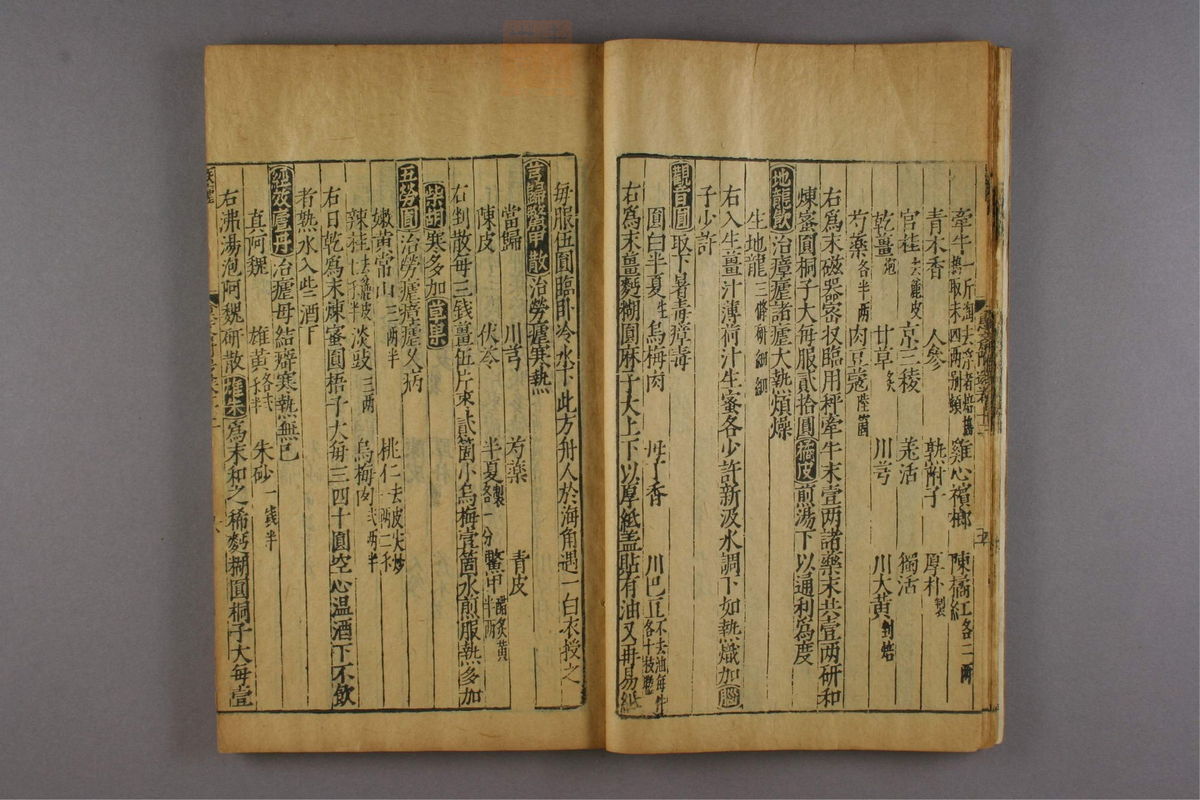 牽牛一斤淘去浮者焙搗熱取末四兩別頓 雞心檳榔 陳橘紅各二兩
青木香 人參 熟附子 厚朴製
官桂去麄皮 京三稜 羌活 獨活
乾薑炮 甘草炙 川芎 川大黃剉焙
芍藥各半兩 肉豆蔻陸箇
右爲末磁器密收臨用秤牽牛末壹兩諸藥末共壹兩研和
煉蜜圓桐子大每服貳拾圓橘皮煎湯下以通利爲度
地龍飲 治瘴瘧諸瘧大熱煩燥
生地龍三條研細
右入生薑汁薄荷汁生蜜各少許新汲水調下如熱熾加腦
子少許
觀音圓 取下暑毒瘴毒
圓白半夏生 烏梅肉 母丁香 川巴豆不去油每件各十枚
右爲末薑麪糊圓麻子大上下以厚紙盖貼有油又再易紙
每服伍圓臨卧冷水下此方舟人於海角遇一白衣授之
芎歸鱉甲散 治勞瘧寒熱
當歸 川芎 芍藥 青皮
陳皮 茯苓 半夏製各一分 鱉甲醋炙黃半兩
右剉散每三錢薑伍片棗貳箇小烏梅壹箇水煎服熱多加
柴胡寒多加草菓
五勞圓 治勞瘧瘴瘧久病
嫩黃常山三兩半 桃仁去皮尖炒一兩二錢
辣桂去麄皮 淡豉三兩 烏梅肉弍兩半
右日乾爲末煉蜜圓梧子大每三四十圓空心温酒下不飲
者熱水入些二酒下
經效瘧丹 治瘧母結癖寒熱無已
真阿魏 雄黃各弍錢半 朱砂一錢半
右沸湯泡阿魏研散雄朱爲末和之稀麪糊圓桐子大每壹